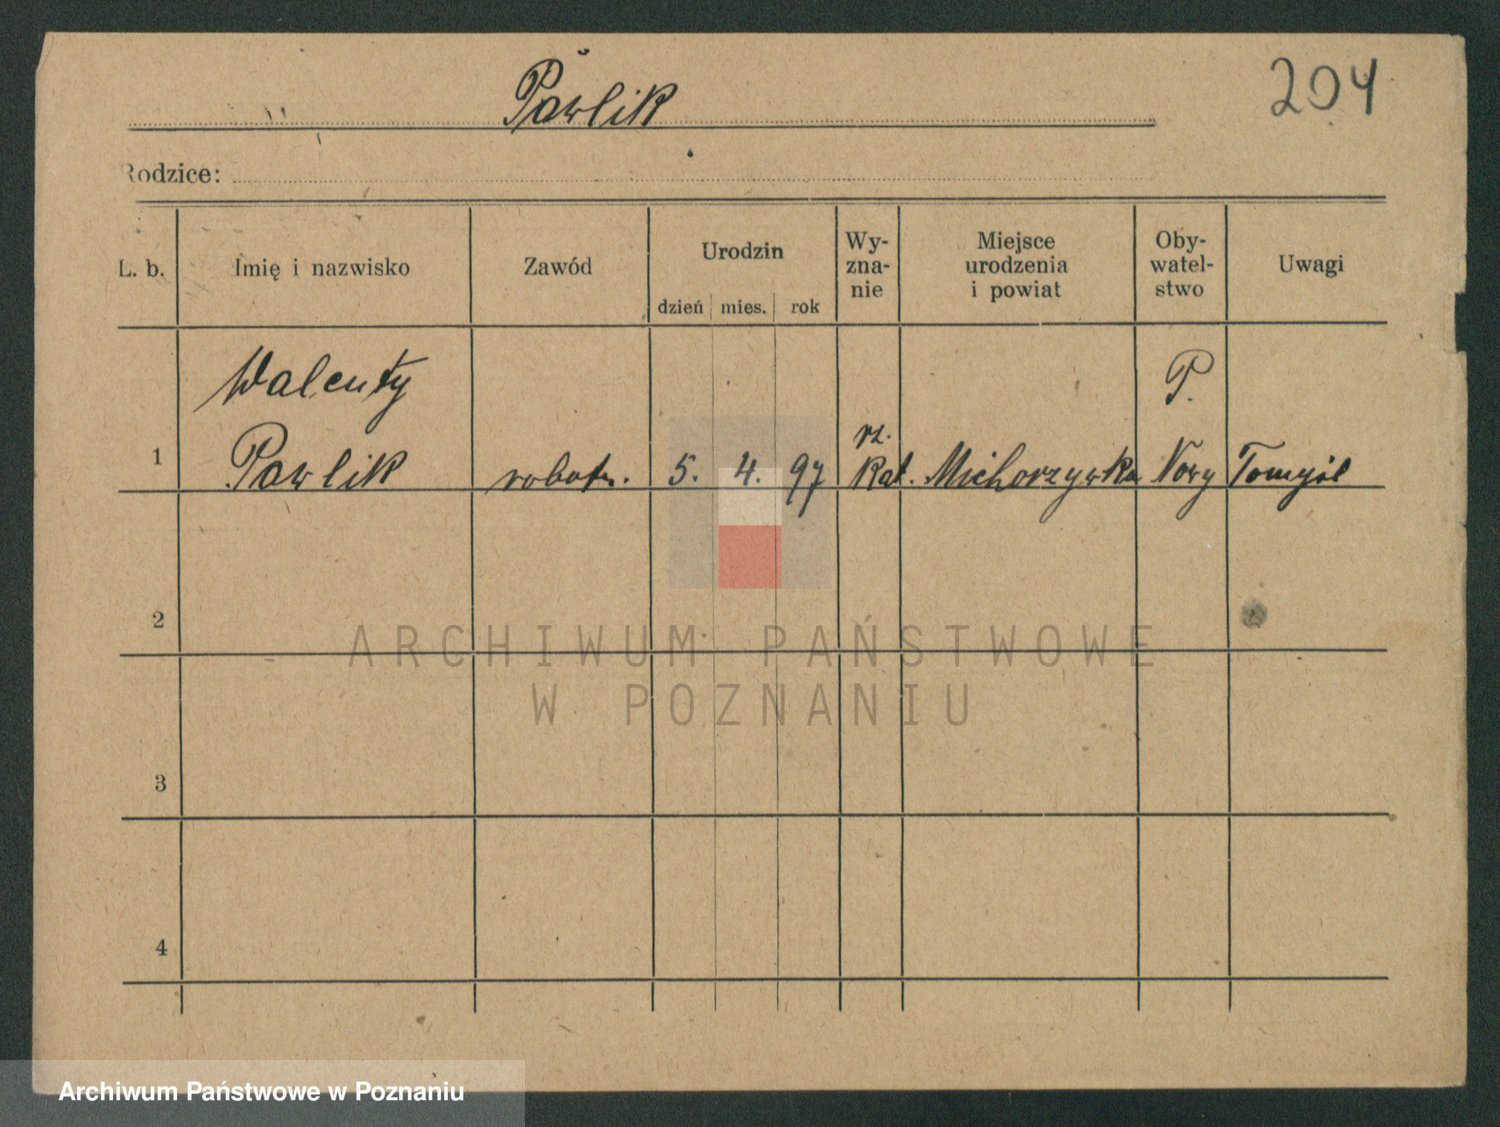 Pawlik
204
Rodzice:
L. b.
Imię i nazwisko
Zawód
Urodzin
dzień mies. rok
Wy-
zna-
nie
Miejsce
urodzenia
i powiat
Oby-
watel-
stwo
Uwagi
Walenty
P.
rz.
1 Pawlik robotn. 5. 4. 97 Kat. Michorzewka Nowy Tomyśl
2
3
4
ARCHIWUM PAŃSTWOWE
W POZNANIU
Archiwum Państwowe w Poznaniu